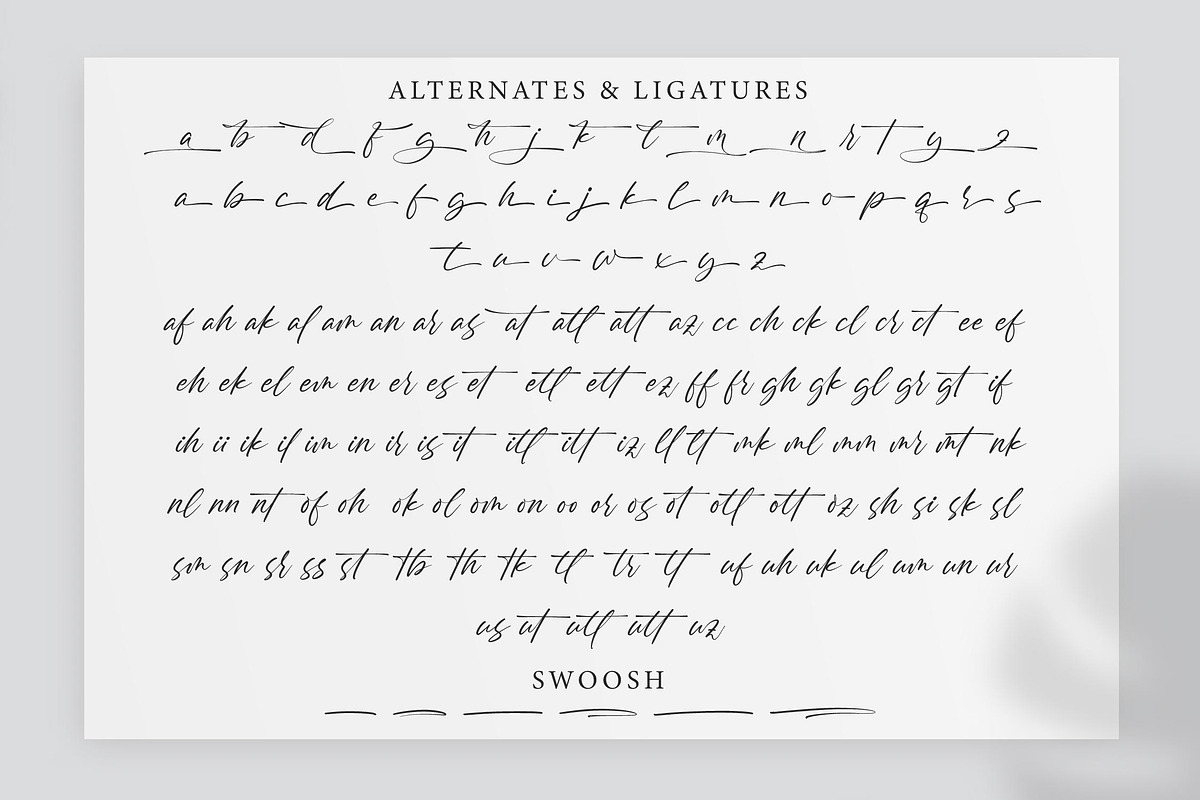 ALTERNATES & LIGATURES
a b d f g h j k t m n r t y z
a b c d e f g h i j k l m n o p q r s
t u v w x y z
af ah ak al am an ar as at atl att az cc ch ck cl cr ct ee ef
eh ek el em en er es et etl ett ez ff fr gh gk gl gr gt if
ih ii ik il im in ir is it itl itt iz ll lt mk ml mm mr mt nk
nl nn nt of oh ok ol om on oo or os ot otl ott oz sh si sk sl
sm sn sr ss st tb th tk tl tr tt uf uh uk ul um un ur
us ut utl utt uz
SWOOSH